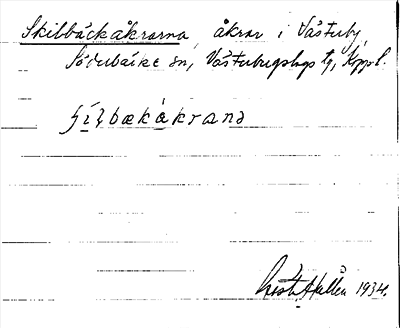 Skilbäckåkrarna, åkrar i Västerby,
Söderbärke sn, Västerbergslags tg, Kopp.l.
ʃílbækàkranə
Hallén 1934.